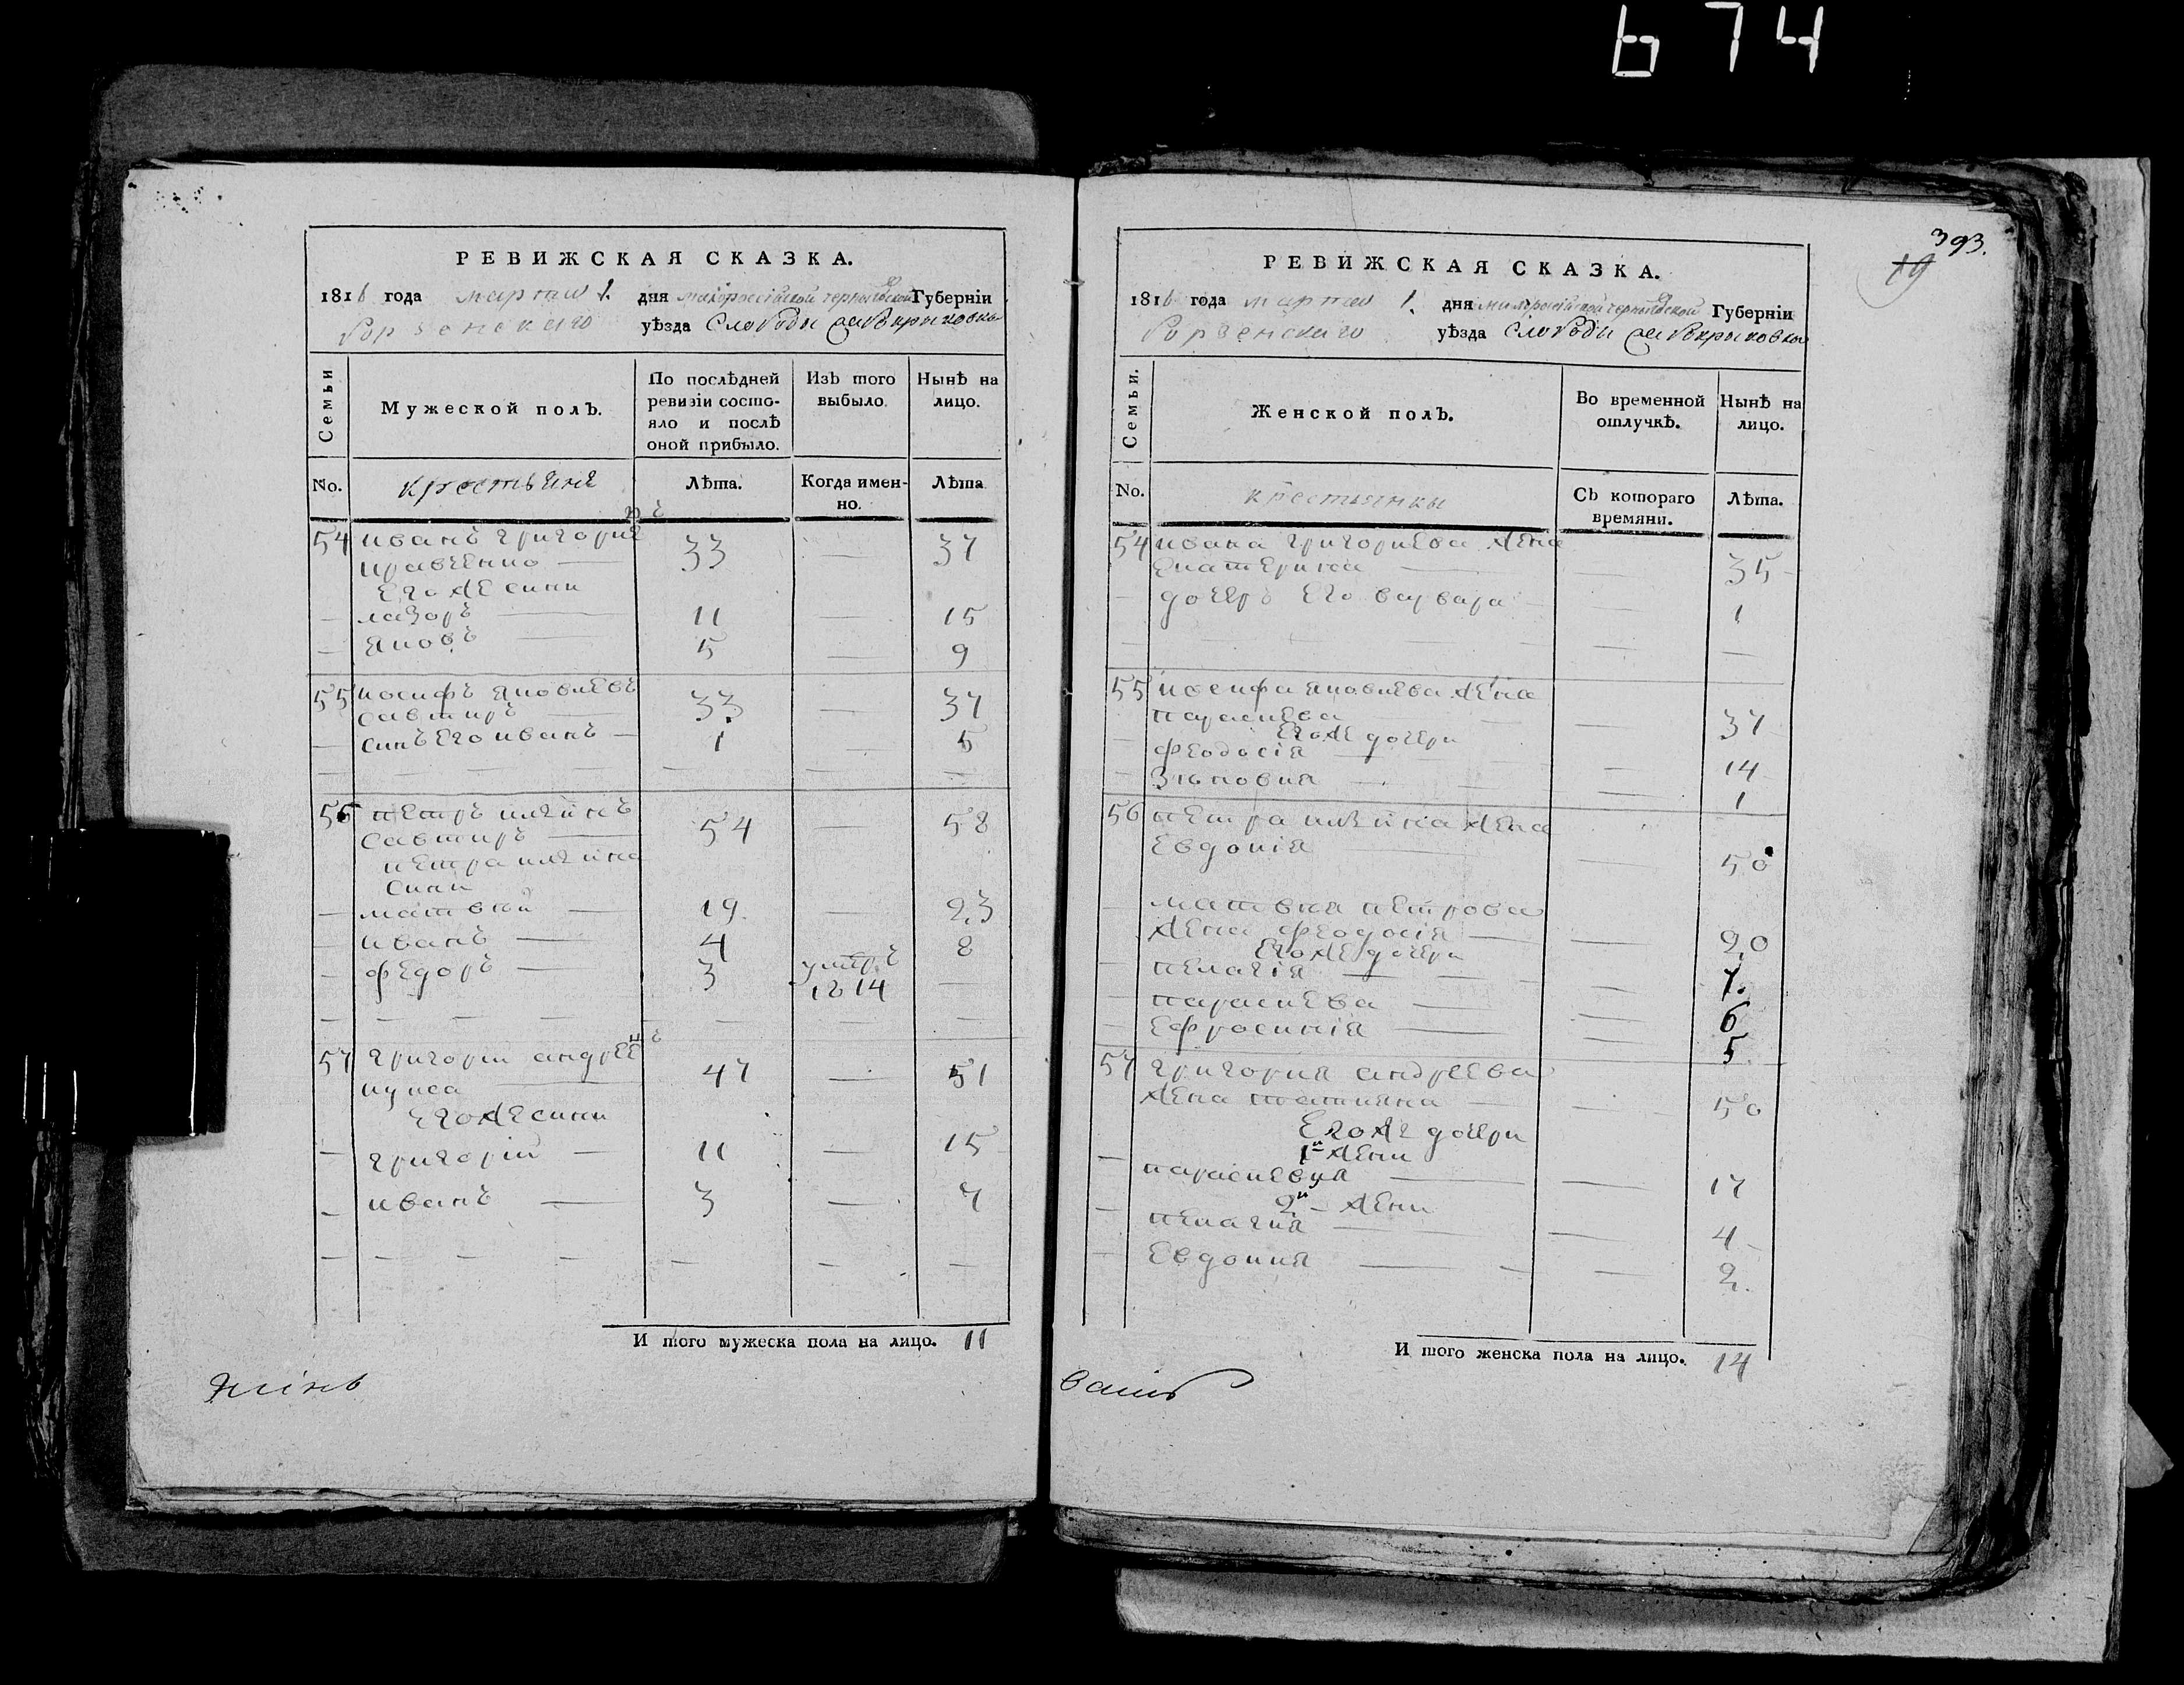 674
РЕВИЖСКАЯ СКАЗКА.
1816 года марта 1. дня малоросійской черниговской Губерніи
борзенскаго уѣзда Слободы
Семьи
Мужеской полЪ.
По послѣдней ревизіи состояло и послѣ оной прибыло.
ИзЪ того выбыло.
Нынѣ на лицо.
No. крестьяне Лѣта. Когда именно. Лѣта
54 иванъ григориевъ 33 — 37
кравченко —
Его же сини
— лазоръ — 11 — 15
— яковъ — 5 — 9
55 иосифъ яковлевъ 33 — 37
—
— синъ его иванъ — 1 — 5
— — — — — — —
56 петръ 54 — 58
—
петра
сини
— матвей — 19. — 23
— иванъ — 4 — 8
— федоръ — 3 умеръ 1814 —
— — — — — — —
57 григорий андреевъ 47 — 51
—
Его же сини
— григорий — 11 — 15
— иванъ — 3 — 7
— — — — — — —
И того мужеска пола на лицо. 11
393.
19
РЕВИЖСКАЯ СКАЗКА.
1816 года марта 1. дня малоросійской черниговской Губерніи
борзенскаго уѣзда Слободы
Семьи.
Женской полЪ.
Во временной отлучкѣ.
Нынѣ на лицо.
No. крестьянки СЬ котораго времяни. Лѣта.
54 ивана григориева жена
Екатерина — — 35
— дочеръ его варвара — — 1
— — — — — —
55 иосифа яковлева жена
параскева — — 37
Его же дочери
— феодосія — — 14
— зѣновия — — 1
56 петра жена
Евдокія — — 50
— матвея петрова
жена феодосія — — 20
Его же дочери
— пелагія — — 7.
— параскева — — 6
— Ефросинія — — 5
57 григория андреева
жена татияна — — 50
Его же дочери
1й жени
— параскевия — — 17
2й — жени
— пелагия — — 4
— Евдокия — — 2
И того женска пола на лицо. 14